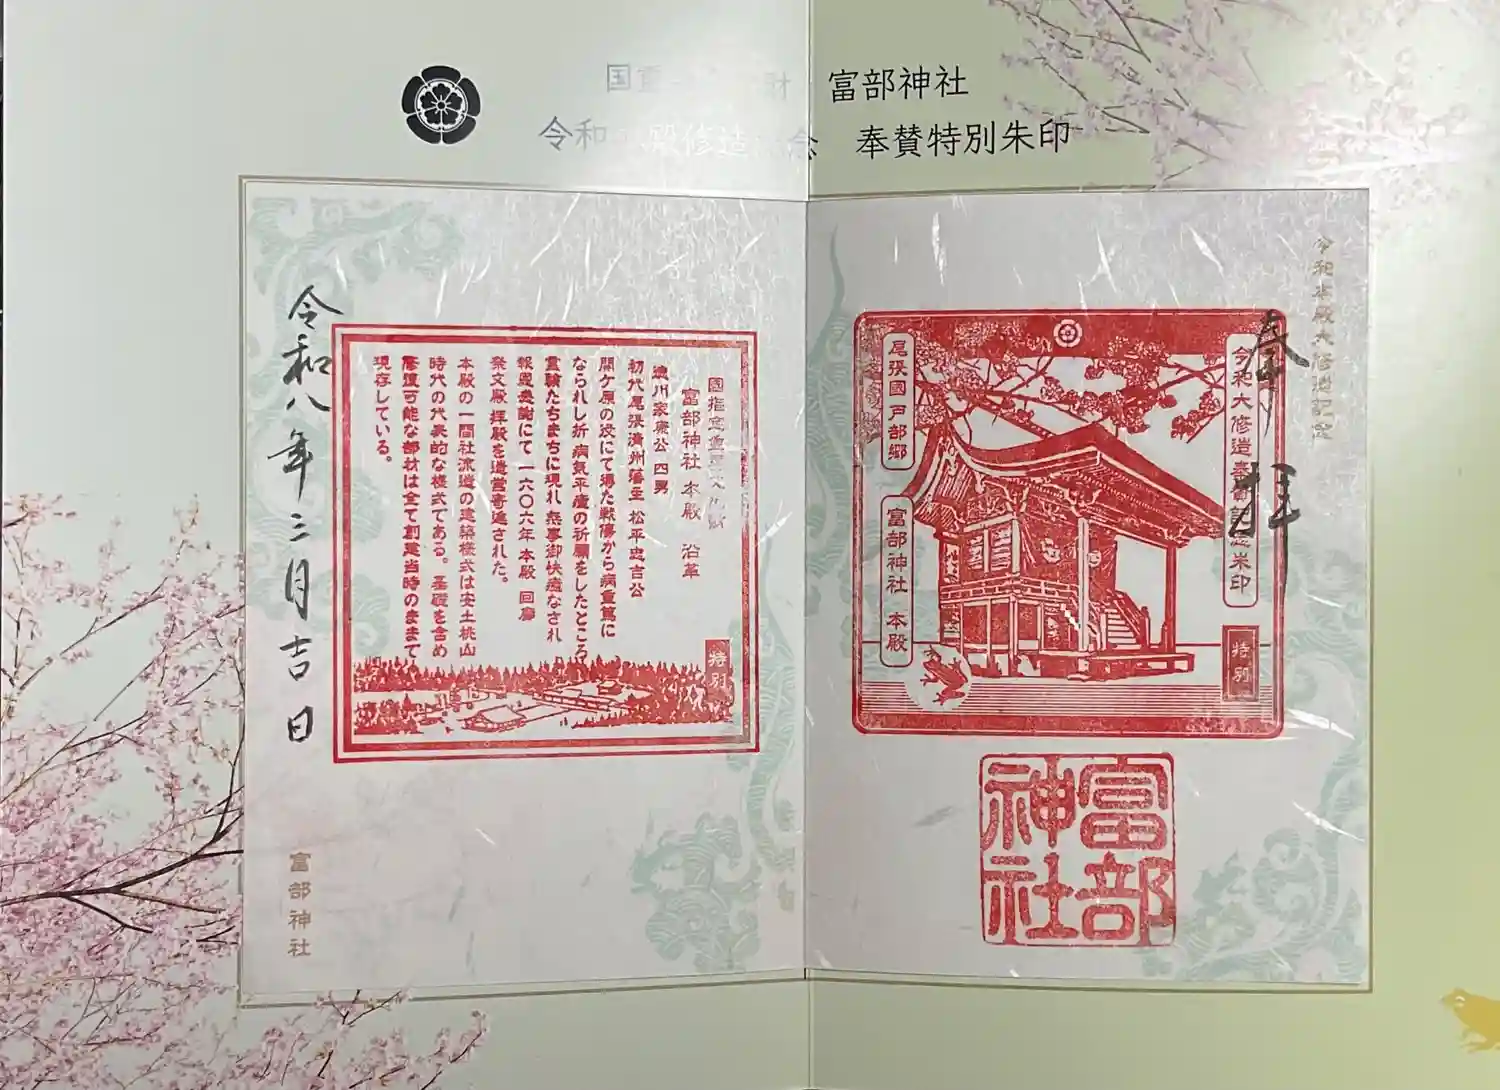 国重 財 富部神社
令和 殿修造 念 奉賛特別朱印
令和本殿大修造記念
奉拝
令和大修造奉賛 朱印
特別
尾張國戸部郷
富部神社 本殿
富部神社
國指定重
富部神社 本殿 沿革
徳川家康公 四男
初代尾張清州藩主 松平忠吉公
関ケ原の役にて得た戦傷から病重篤に
なられし折 病気平癒の祈願をしたところ
霊験たちまちに現れ 無事御快癒なされ
報恩感謝にて 一六〇六年 本殿 回廊
祭文殿 拝殿を造営寄進された。
本殿の一間社流造の建築様式は安土桃山
時代の代表的な様式である。基礎を含め
修理可能な部材は全て創建当時のままで
現存している。
特別
令和八年三月吉日
富部神社